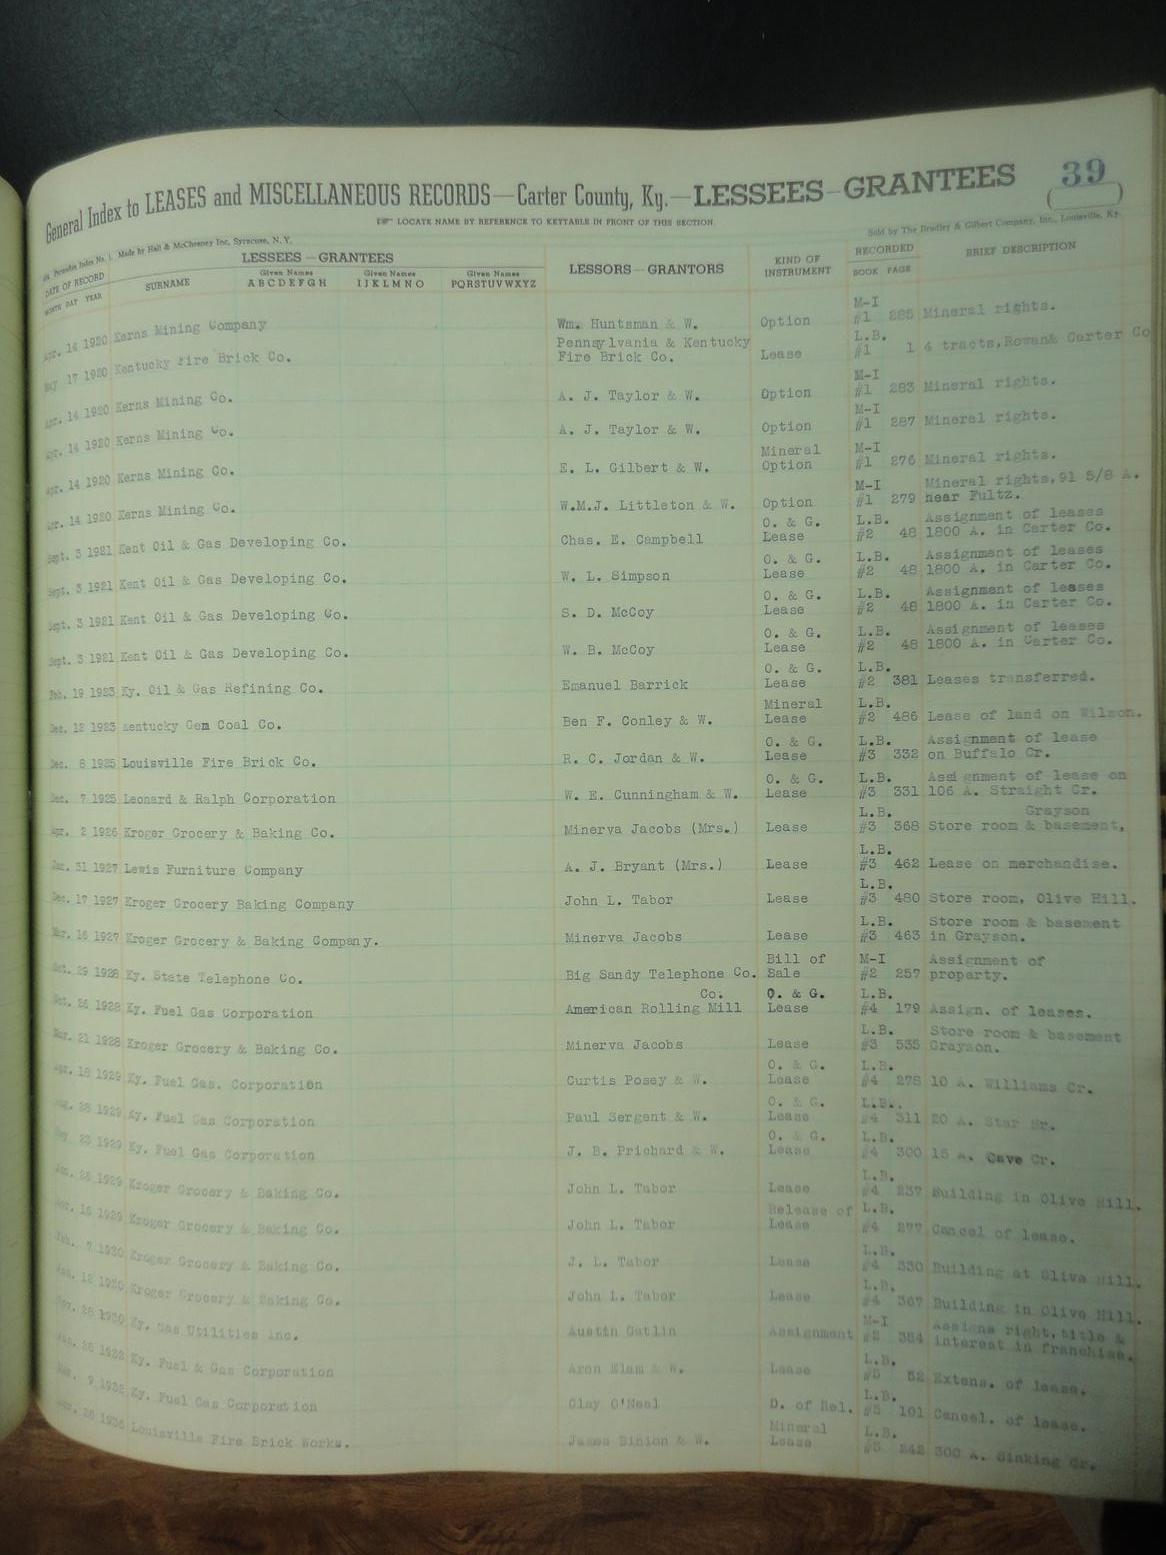 General Index to LEASES and MISCELLANEOUS RECORDS—Carter County, Ky.—LESSEES—GRANTEES 39
LOCATE NAME BY REFERENCE TO KEYTABLE IN FRONT OF THIS SECTION.
Made by Hall & McChesney Inc, Syracuse, N.Y. Sold by The Bradley & Gilbert Company, Inc., Louisville, Ky.
DATE OF RECORD LESSEES—GRANTEES LESSORS—GRANTORS KIND OF INSTRUMENT RECORDED BRIEF DESCRIPTION
MONTH DAY YEAR SURNAME Given Names ABCDEFGH Given Names IJKLMNO Given Names PQRSTUVWXYZ BOOK PAGE
Apr. 14 1920 Kerns Mining Company Wm. Huntsman & W. Option M-I #1 285 Mineral rights.
May 17 1920 Kentucky Fire Brick Co. Pennsylvania & Kentucky Fire Brick Co. Lease L.B. #1 1 4 tracts,Rowan& Carter Co
Apr. 14 1920 Kerns Mining Co. A. J. Taylor & W. Option M-I #1 283 Mineral rights.
Apr. 14 1920 Kerns Mining Co. A. J. Taylor & W. Option M-I #1 287 Mineral rights.
Apr. 14 1920 Kerns Mining Co. E. L. Gilbert & W. Mineral Option M-I #1 276 Mineral rights.
Apr. 14 1920 Kerns Mining Co. W.M.J. Littleton & W. Option M-I #1 279 Mineral rights,91 5/8 A. near Fultz.
Sept. 3 1921 Kent Oil & Gas Developing Co. Chas. E. Campbell O. & G. Lease L.B. #2 48 Assignment of leases 1800 A. in Carter Co.
Sept. 3 1921 Kent Oil & Gas Developing Co. W. L. Simpson O. & G. Lease L.B. #2 48 Assignment of leases 1800 A. in Carter Co.
Sept. 3 1921 Kent Oil & Gas Developing Co. S. D. McCoy O. & G. Lease L.B. #2 48 Assignment of leases 1800 A. in Carter Co.
Sept. 3 1921 Kent Oil & Gas Developing Co. W. B. McCoy O. & G. Lease L.B. #2 48 Assignment of leases 1800 A. in Carter Co.
Feb. 19 1923 Ky. Oil & Gas Refining Co. Emanuel Barrick O. & G. Lease L.B. #2 381 Leases transferred.
Dec. 12 1923 Kentucky Gem Coal Co. Ben F. Conley & W. Mineral Lease L.B. #2 486 Lease of land on Wilson.
Dec. 8 1925 Louisville Fire Brick Co. R. C. Jordan & W. O. & G. Lease L.B. #3 332 Assignment of lease on Buffalo Cr.
Dec. 7 1925 Leonard & Ralph Corporation W. E. Cunningham & W. O. & G. Lease L.B. #3 331 Assignment of lease on 106 A. Straight Cr.
Apr. 2 1926 Kroger Grocery & Baking Co. Minerva Jacobs (Mrs.) Lease L.B. #3 368 Grayson Store room & basement,
Jan. 31 1927 Lewis Furniture Company A. J. Bryant (Mrs.) Lease L.B. #3 462 Lease on merchandise.
Dec. 17 1927 Kroger Grocery Baking Company John L. Tabor Lease L.B. #3 480 Store room, Olive Hill.
Mar. 16 1927 Kroger Grocery & Baking Company. Minerva Jacobs Lease L.B. #3 463 Store room & basement in Grayson.
Oct. 29 1928 Ky. State Telephone Co. Big Sandy Telephone Co. Bill of Sale M-I #2 257 Assignment of property.
Oct. 26 1928 Ky. Fuel Gas Corporation American Rolling Mill Co. O. & G. Lease L.B. #4 179 Assign. of leases.
Mar. 21 1928 Kroger Grocery & Baking Co. Minerva Jacobs Lease L.B. #3 535 Store room & basement Grayson.
Apr. 18 1929 Ky. Fuel Gas. Corporation Curtis Posey & W. O. & G. Lease L.B. #4 278 10 A. Williams Cr.
28 1929 Ky. Fuel Gas Corporation Paul Sergent & W. O. & G. Lease L.B. #4 311 20 A. Star Br.
1929 Ky. Fuel Gas Corporation J. B. Prichard & W. O. & G. Lease L.B. #4 300 15 A. Cave Cr.
1929 Kroger Grocery & Baking Co. John L. Tabor Lease L.B. #4 237 Building in Olive Hill.
1929 Kroger Grocery & Baking Co. John L. Tabor Release of Lease L.B. #4 277 Cancel of lease.
Feb. 7 1930 Kroger Grocery & Baking Co. J. L. Tabor Lease L.B. #4 Building at Olive Hill.
12 1930 Kroger Grocery & Baking Co. John L. Tabor Lease L.B. #4 367 Building in Olive Hill.
1930 Ky. Gas Utilities Inc. Austin Gatlin Assignment M-I #2 384 Assigns right,title & interest in franchise.
Ky. Fuel & Gas Corporation Aron Elam & W. Lease L.B. #5 52 Extens. of lease.
9 1932 Ky. Fuel Gas Corporation Clay O'Neal D. of Rel. L.B. #5 101 Cancel. of lease.
Louisville Fire Brick Works. James Binion & W. Mineral Lease L.B. #5 242 300 A. Sinking Cr.